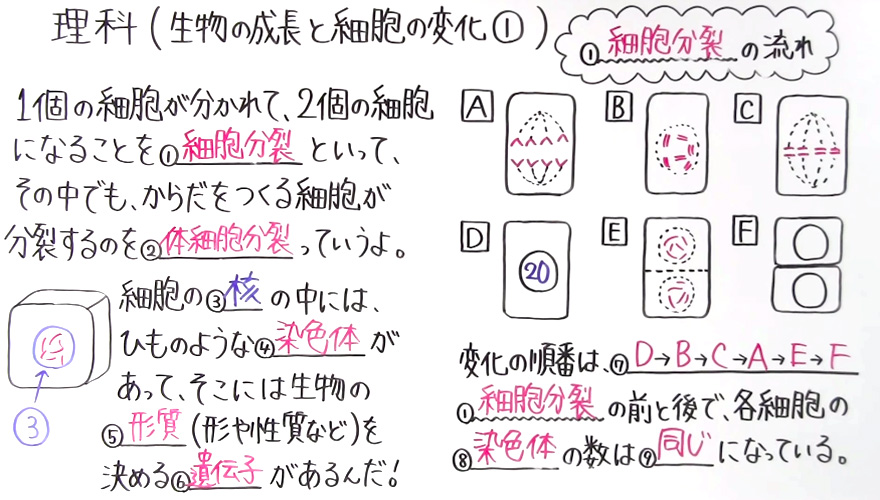 理科(生物の成長と細胞の変化①)
①細胞分裂の流れ
1個の細胞が分かれて、2個の細胞
になることを①細胞分裂といって、
その中でも、からだをつくる細胞が
分裂するのを②体細胞分裂っていうよ。
細胞の③核の中には、
ひものような④染色体が
あって、そこには生物の
⑤形質(形や性質など)を
決める⑥遺伝子があるんだ!
③
A
B
C
D
20
E
F
変化の順番は、⑦D→B→C→A→E→F
①細胞分裂の前と後で、各細胞の
⑧染色体の数は⑨同じになっている。